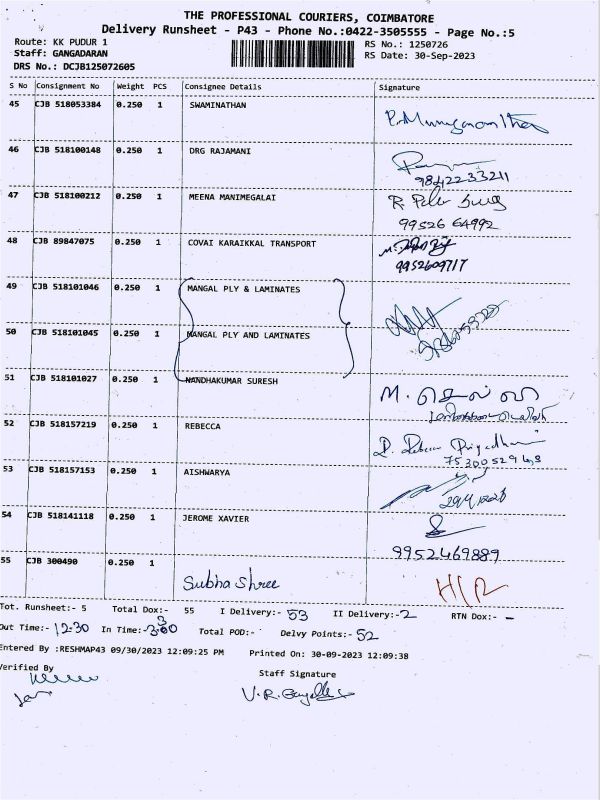 THE PROFESSIONAL COURIERS, COIMBATORE
Delivery Runsheet - P43 - Phone No.:0422-3505555 - Page No.:5
Route: KK PUDUR 1 RS No.: 1250726
Staff: GANGADARAN RS Date: 30-Sep-2023
DRS No.: DCJB125072605
S No Consignment No Weight PCS Consignee Details Signature
45 CJB 518053384 0.250 1 SWAMINATHAN
46 CJB 518100148 0.250 1 DRG RAJAMANI
9842233211
47 CJB 518100212 0.250 1 MEENA MANIMEGALAI
99526 64992
48 CJB 89847075 0.250 1 COVAI KARAIKKAL TRANSPORT
9952609717
49 CJB 518101046 0.250 1 MANGAL PLY & LAMINATES
50 CJB 518101045 0.250 1 MANGAL PLY AND LAMINATES
51 CJB 518101027 0.250 1 NANDHAKUMAR SURESH
52 CJB 518157219 0.250 1 REBECCA
53 CJB 518157153 0.250 1 AISHWARYA
54 CJB 518141118 0.250 1 JEROME XAVIER
9952469889
55 CJB 300490 0.250 1
Subha Shree
Tot. Runsheet:- 5 Total Dox:- 55 I Delivery:- 53 II Delivery:- 2 RTN Dox:- -
Out Time:- 12-30 In Time:- Total POD:- Delvy Points:- 52
Entered By :RESHMAP43 09/30/2023 12:09:25 PM Printed On: 30-09-2023 12:09:38
Verified By Staff Signature